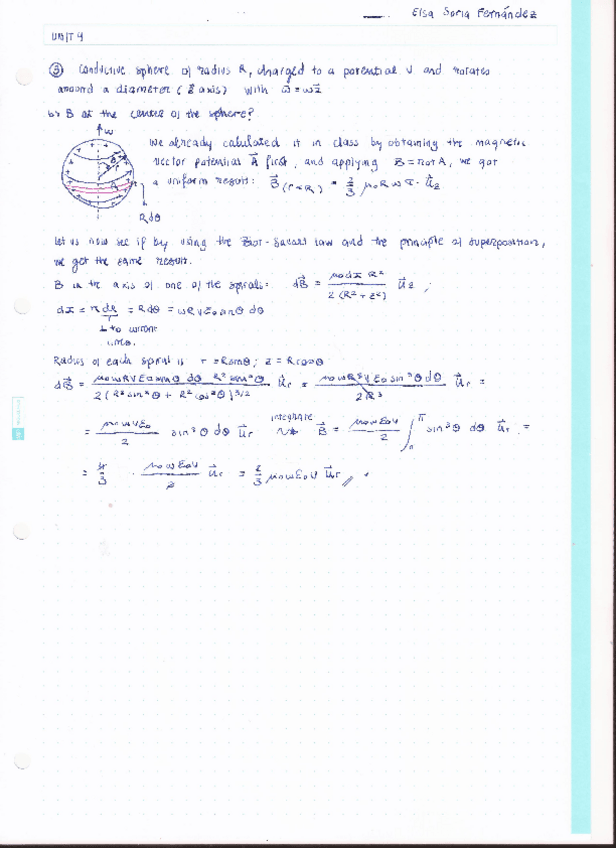 Elsa Soria Fernández
UNIT 4
③ Conductive sphere of radius R, charged to a potential V and rotates
around a diameter (z axis) with ω⃗ = ωz⃗
b) B at the centre of the sphere?
ω
We already calculated it in class by obtaining the magnetic
vector potential A⃗ first, and applying B = rot A, we got
a uniform result: B⃗ (r<R) = 2/3 μ₀Rωσ · u⃗z
Rdθ
Let us now see if by using the Biot-Savart law and the principle of superposition,
we get the same result.
B in the axis of one of the spirals: dB⃗ = / 2(R² + z²) u⃗z ;
= Rdθ = ωRVε₀ sinθ dθ
⊥ to
Radius of each spiral is r = Rsinθ ; z = Rcosθ
dB⃗ = μ₀ωRVε₀ sinθ dθ R² sin²θ / 2(R² sin²θ + R² cos²θ)^3/2 u⃗r = μ₀ωR³Vε₀ sin³θ dθ / 2R³ u⃗r =
= μ₀ωVε₀ / 2 sin³θ dθ u⃗r integrate B⃗ = μ₀ωε₀V / 2 ∫₀^π sin³θ dθ u⃗r =
= 4/3 · μ₀ωε₀V / 2 u⃗r = 2/3 μ₀ωε₀V u⃗r